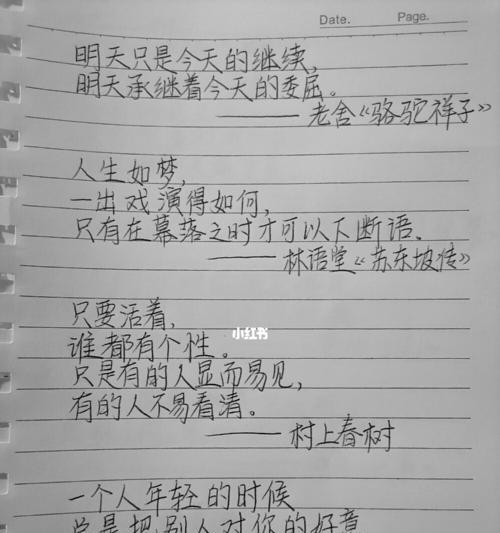 Date.
Page.
明天只是今天的继续,
明天承继着今天的委屈。
——— 老舍《骆驼祥子》
人生如梦,
一出戏演得如何,
只有在幕落之时才可以下断语。
——— 林语堂《苏东坡传》
只要活着,
小红书
谁都有个性。
只是有的人显而易见,
有的人不易看清。
——— 村上春树
一个人年轻的时候
总是把别人对你的好意